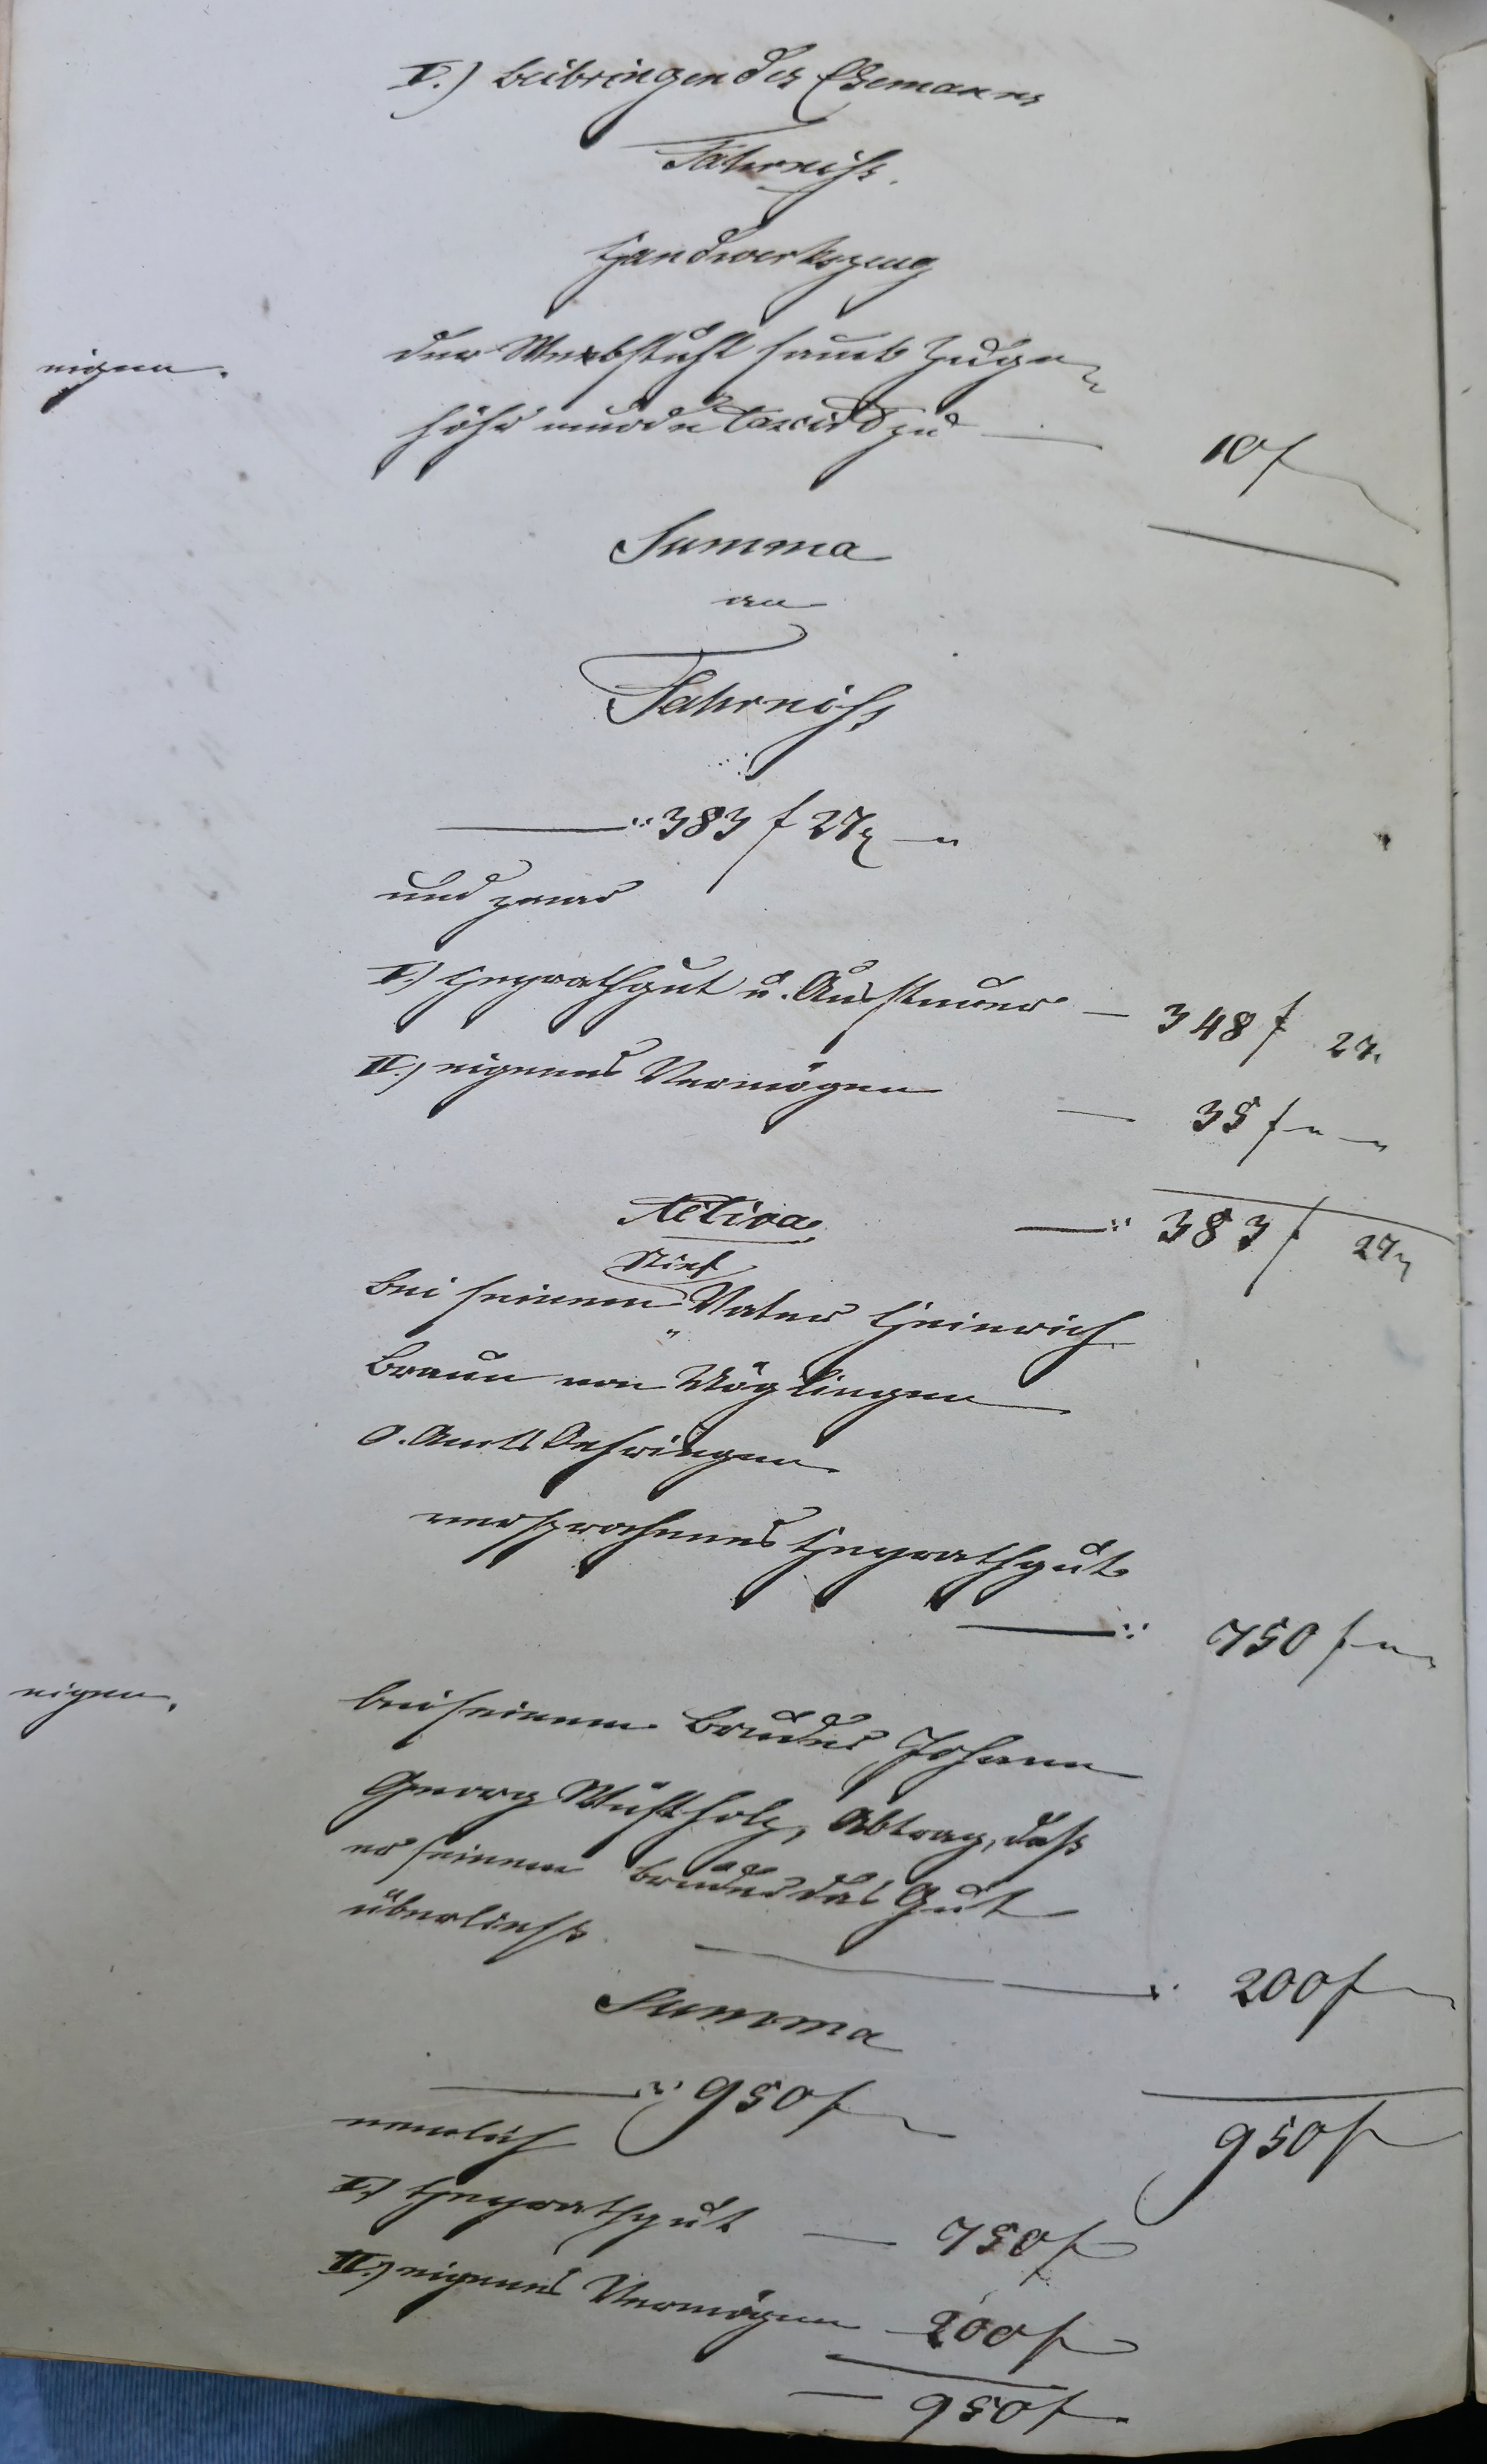 II.) Beibringen des Ehemanns
Fahrniß.
Handwerkszeug
eigen.
der Webstuhl samt Zuge-
höhr wurde taxirt zu — 10 f
Summa
an
Fahrniß
—:: 383 f 27 x —"
und zwar
I.) Heyrathgut u. Aussteuer — 348 f 27.
II.) eigenes Vermögen — 35 f " — "
—:: 383 f 27 x
Activa,
Stief
bei seinem " Vater Heinrich
Braun von Möglingen
O. Amts Oehringen
versprochenes Heyrathgut
—:: 750 f " —
eigen.
bei seinem Bruder Johann
Georg Wüstholz, Abtrag, daß
er seinem Bruder das Gut
überließ. —: 200 f —
Summa
—:: 950 f —
950 f
nemlich
I.) Heyrathgut — 750 f
II.) eigenes Vermögen 200 f
— 950 f.